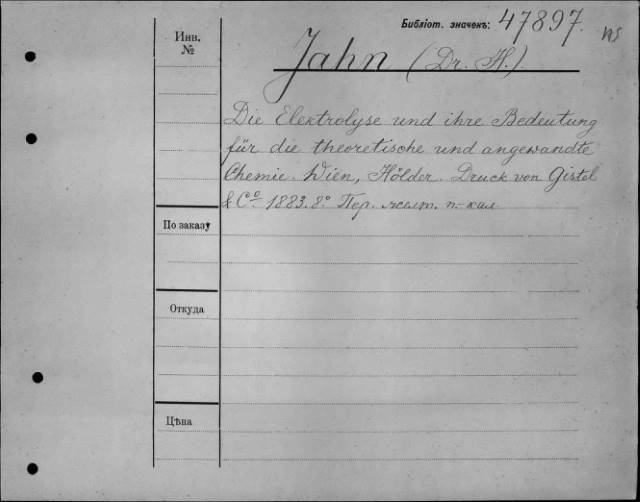 Библіот. значекъ: 47897.
Инв.
№
Jahn (Dr. H.)
Die Elektrolyse und ihre Bedeutung
für die theoretische und angewandte
Chemie. Wien, Hölder. Druck von Gistel
& Cº 1883. 8º Пер. желт. п.-кал
По заказу
Откуда
Цѣна